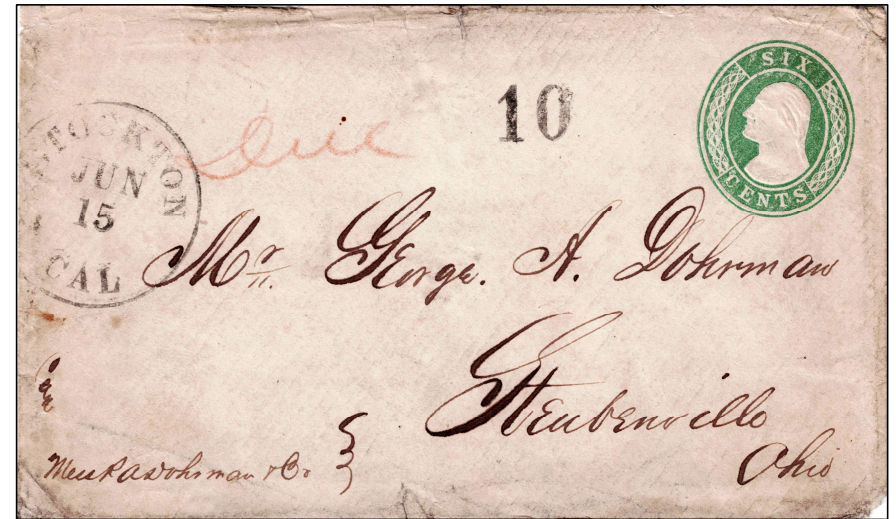 SIX
CENTS
10
Due
STOCKTON
JUN
15
CAL
Mr. George. A. Dohrman
Steubenville
Ohio
Dohrman & Co